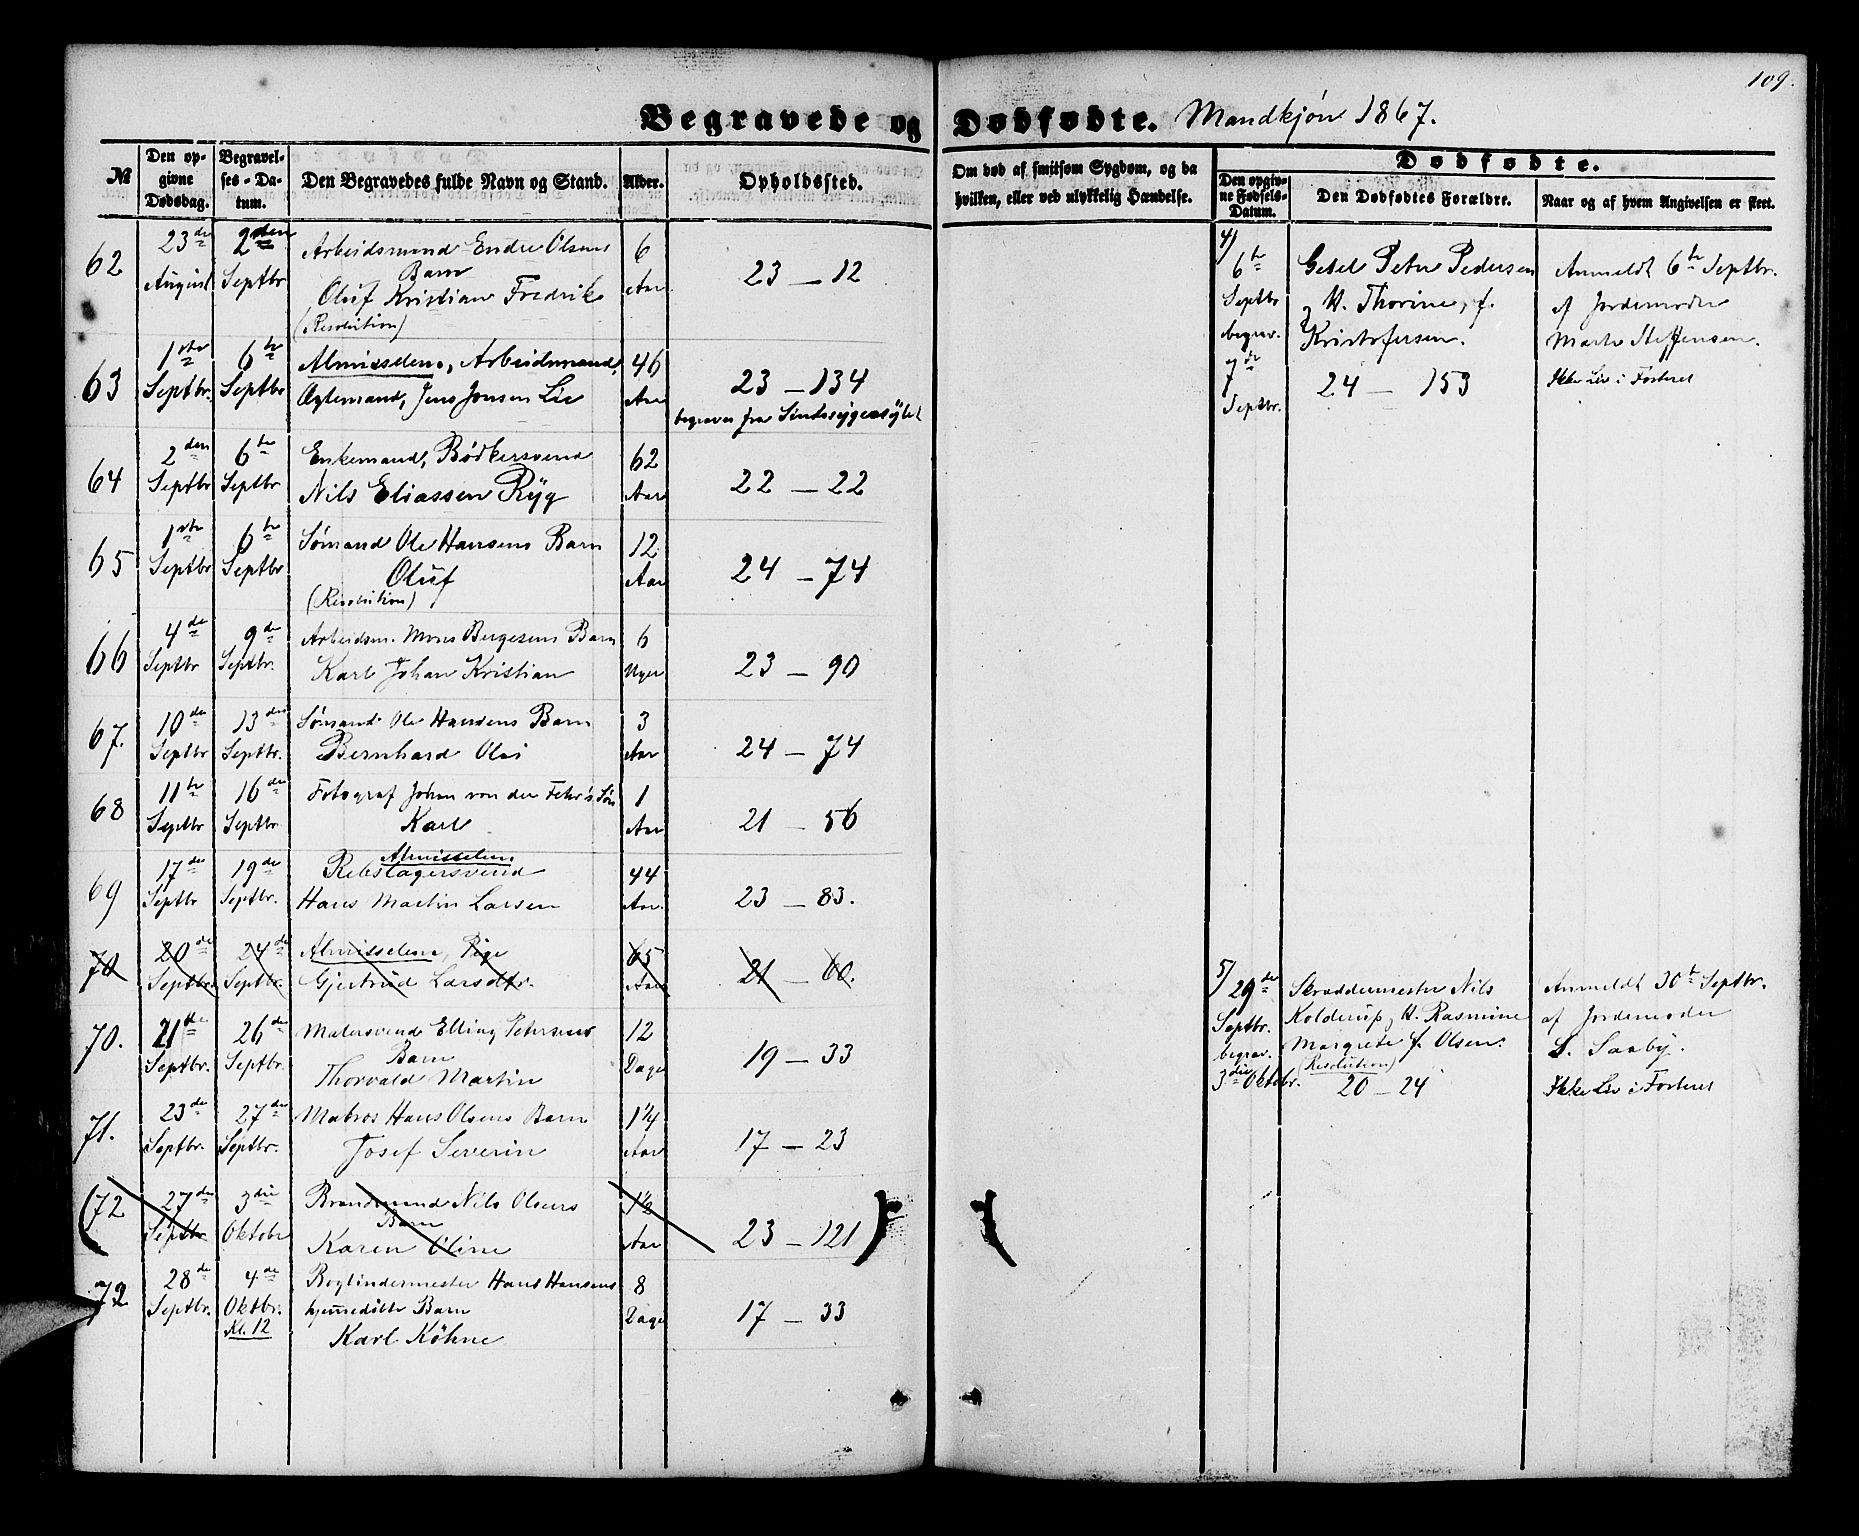 109.
Begravede og Dødfødte. Mandkjøn 1867.
№
Den opgivne Dødsdag.
Begravelses-Datum.
Den Begravedes fulde Navn og Stand.
Alder.
Opholdssted.
Om død af smitsom Sygdom, og da hvilken, eller ved ulykkelig Hændelse.
Dødfødte.
Den opgivne Fødsels-Datum.
Den Dødfødtes Forældre.
Naar og af hvem Angivelsen er skeet.
62 23de August 2den Septbr Arbeidsmand Endre Olsens 6 Aar 23 — 12
Barn
Oluf Kristian Fredrik
(Resolution)
63 1ste Septbr. 6te Septbr Almisselem, Arbeidsmand, 46 Aar 23 — 134
Ægtemand, Jens Jonsen Lie
begraves fra Sindssygeasylet
64 2den Septbr 6te Septbr Enkemand, Bødkersvend 62 Aar 22 — 22
Nils Eliassen Ryg
65 1ste Septbr 6te Septbr Sømand Ole Hansens Barn 12 Aar 24 — 74
Oluf
(Resolution)
66 4de Septbr 9de Septbr. Arbeidsm. Mons Bergesens Barn 6 Uger 23 — 90
Karl Johan Kristian
67. 10de Septbr 13de Septbr. Sømand Ole Hansens Barn 3 Aar 24 — 74
Bernhard Olai
68 11te Septbr 16de Septbr Fotograf Johan von der Fehr's Søn 1 Aar 21 — 56
Karl
69 17de Septbr 19de Septbr. Almisselem 44 Aar. 23 — 83.
Rebslagersvend
Hans Martin Larsen
70 20de Septbr. 24de Septbr. Almisselem, Pige 65 Aar 21 — 60.
Gjertrud Larsdtr.
70. 21de Septbr. 26de Septbr. Malersvend Elling Petersens 12 Dage 19 — 33
Barn
Thorvald Martin
71. 23de Septbr. 27de Septbr. Matros Hans Olsens Barn 1¼ Aar 17 — 23
Josef Severin
(72 27de Septbr 3die Oktobr Brandmand Nils Olsens 1½ Aar 23 — 121)
Barn
Karen Oline
72 28de Septbr. 4de Oktbr. Kl. 12 Bogbindermester Hans Hansens 8 Dage 17 — 33
hjemmedøbte Barn
Karl Köhne
4) 6te Septbr begrav. 7de Septbr.
Gesel Peter Pedersen
og H. Thorine, f.
Kristofersen.
24 — 153
Anmeldt 6te Septbr.
af Jordemoder
Marte Steffensen.
Ikke Liv i Fosteret
5) 29de Septbr. begrav. 3die Oktobr.
Skræddermester Nils
Kolderup, H. Rasmine
Margrete f. Olsen.
(Resolution)
20 — 24
Anmeldt 30te Septbr.
af Jordemoder
L. Saaby.
Ikke Liv i Fosteret